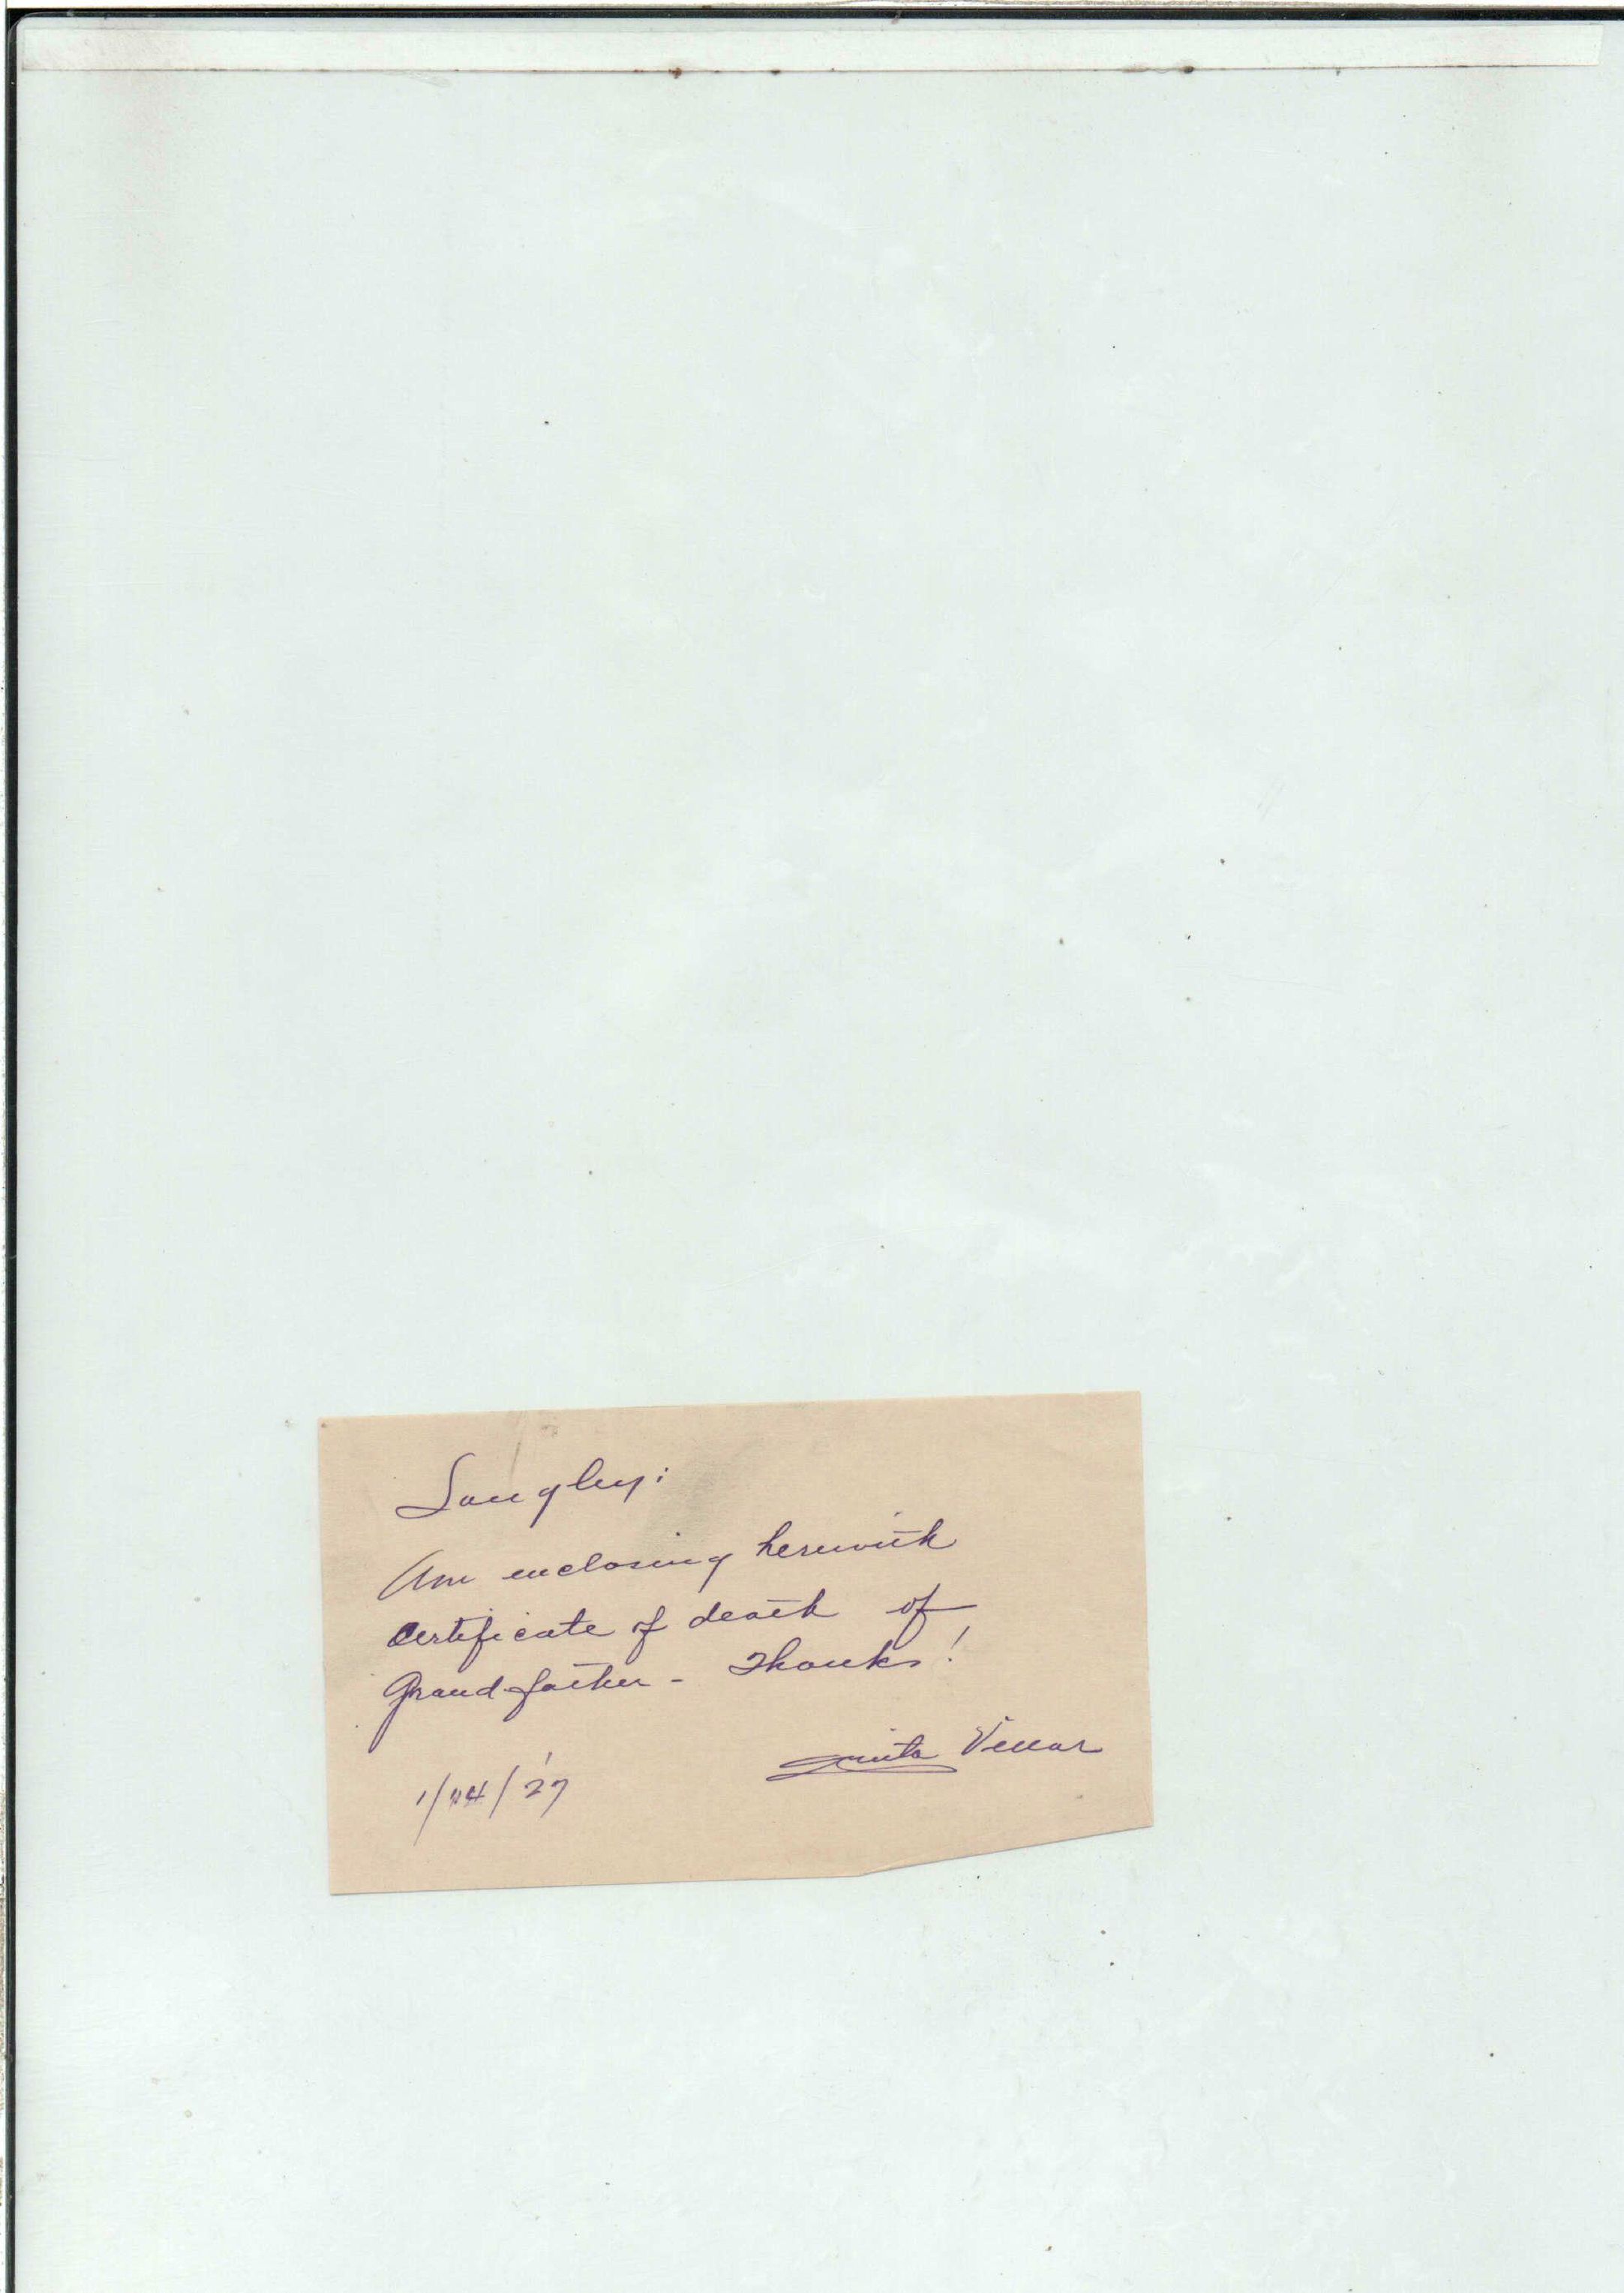 Langley:
Am enclosing herewith
certificate of death of
Grandfather - Thanks!
Villar
1/24/'27